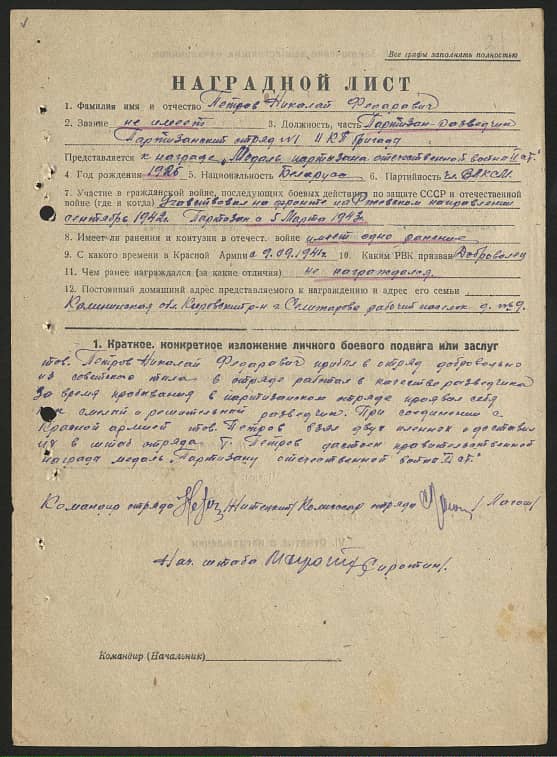 Все графы заполнять полностью
НАГРАДНОЙ ЛИСТ
1. Фамилия имя и отчество Петров Николай Федарович
2. Звание не имеет 3. Должность, часть Партизан-разведчик
Партизанский отряд №1 II КБ бригада
Представляется к награде „Медаль партизана отечественной войны II ст."
4. Год рождения 1926 5. Национальность Беларус 6. Партийность чл. ВЛКСМ.
7. Участие в гражданской войне, последующих боевых действиях по защите СССР и отечественной
войне (где и когда) Участвовал на фронте на Ржевском направлении
сентябрь 1942г. Партизан с 5 Марта 1943г.
8. Имеет-ли ранения и контузии в отечест. войне имеет одно ранение
9. С какого времени в Красной Армии с 9.09.1941г. 10. Каким РВК призван Доброволец
11. Чем ранее награждался (за какие отличия) не награждался.
12. Постоянный домашний адрес представляемого к награждению и адрес его семьи
Калининская обл. Кировский р-н г. Селижарова рабочий поселок д. №9.
1. Краткое, конкретное изложение личного боевого подвига или заслуг
тов. Петров Николай Федарович прибыл в отряд добровольно
из советского тыла в отряде работал в качестве разведчика
За время пребывания в партизанском отряде проявил себя
как смелый и решительный разведчик. При соединении с
Красной армией тов. Петров взял двух пленных и доставил
их в штаб отряда т. Петров достоин правительственной
награда медаль „Партизану отечественной войны II ст."
Командир отряда /Житецкий/ Комиссар отряда /Лагош/
Нач. штаба /Сиротин/.
Командир (Начальник)